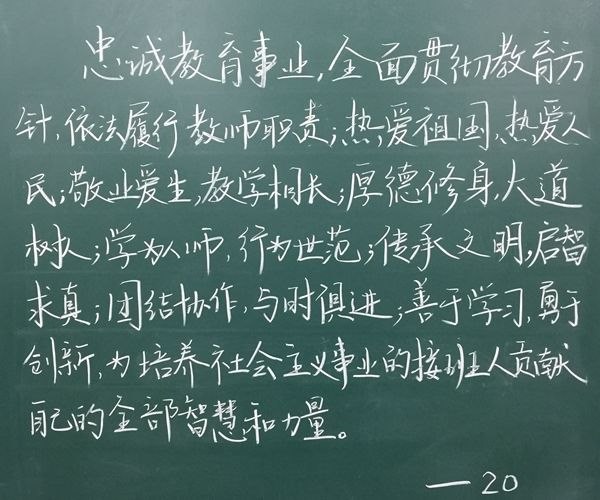 忠诚教育事业,全面贯彻教育方
针,依法履行教师职责;热爱祖国,热爱人
民;敬业爱生,教学相长;厚德修身,大道
树人;学为人师,行为世范;传承文明,启智
求真;团结协作,与时俱进;善于学习,勇于
创新,为培养社会主义事业的接班人贡献
自己的全部智慧和力量。
—20